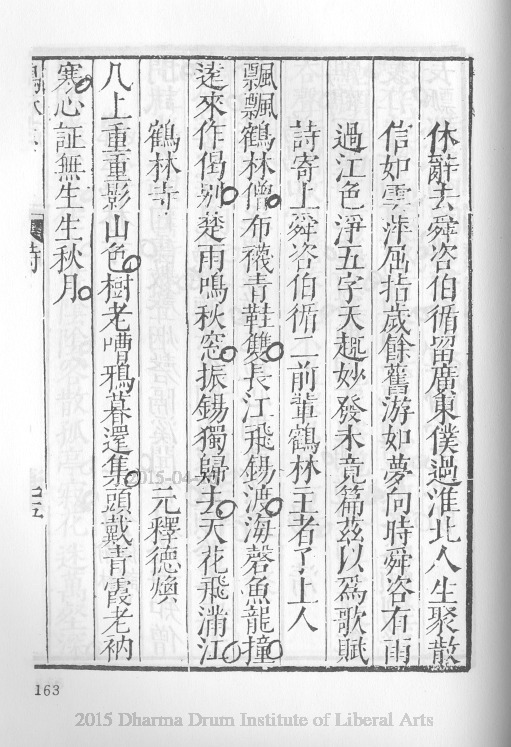 休辭去舜咨伯循留廣東僕過淮北人生聚散
信如雲萍屈指歲餘舊游如夢向時舜咨有雨
過江色淨五字天趣妙發未竟篇茲以爲歌賦
詩寄上舜咨伯循二前輩鶴林主者了上人
飄飄鶴林僧布襪青鞋雙長江飛錫渡海磬魚龍撞
遠來作偈別楚雨鳴秋窓振錫獨歸去天花飛滿江
鶴林寺 元釋德煥
几上重重影山色樹老嘈鴉暮還集頭戴青霞老衲
寒心証無生生秋月
詩
163
2015 Dharma Drum Institute of Liberal Arts